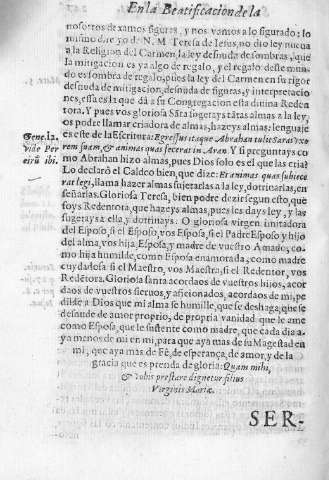 En la Beatificacion de la
nosotros dexamos figuras, y nos vamos a lo figurado: lo
mismo dire yo de N. M. Teresa de Iesus, no dio ley nueua
a la Religion del Carmen, la ley desnuda de sombras, que
la mitigacion es ya algo de regalo, y el regalo deste mun-
do es sombra de regalo, pues la ley del Carmen en su rigor
desnuda de mitigacion, desnuda de figuras, y interpretacio
nes, essa es la que dà a su Congregacion esta diuina Reden
tora. Y pues vos gloriosa Sâra sugetays tãtas almas a la ley,
os podre llamar criadora de almas, hazeys almas: lenguaje
Gene. 12.
es este de la Escritura: Egressus itaque Abrahan tulit Sarai vxo
vide Pe-
rem suam, & animas quas fecerat in Aran. Y si preguntays co
reirũ ibi.
mo Abrahan hizo almas, pues Dios solo es el que las cria?
Lo declarò el Caldeo bien, que dize: Et animas quas subiece
rat legi, llama hazer almas sujetarlas a la ley, dotrinarlas, en
señarlas. Gloriosa Teresa, bien podre dezir segun esto, que
soys Redentora, que hazeys almas, pues les days ley, y las
sugetays a ella, y dotrinays. O gloriosa virgen imitadora
del Esposo, si el Esposo, vos Esposa, si el Padre Esposo y hijo
del alma, vos hija, Esposa, y madre de vuestro Amado, co-
mo hija humilde, como Esposa enamorada, como madre
cuydadosa: si el Maestro, vos Maestra, si el Redentor, vos
Redẽtora. Gloriosa santa acordaos de vuestros hijos, acor
daos de vuestros sieruos, y aficionados, acordaos de mi, pe
dilde a Dios que mi alma se humille, que se deshaga, que se
desnude de amor proprio, de propria vanidad que le ame
como Esposa, que le sustente como madre, que cada dia a-
ya menos de mi en mi, para que aya mas de su Magestad en
mi, que aya mas de Fè, de esperança, de amor, y de la
gracia que es prenda de gloria: Quam mihi,
& vobis prestare dignetur filius
Virginis Mariæ.
SER-